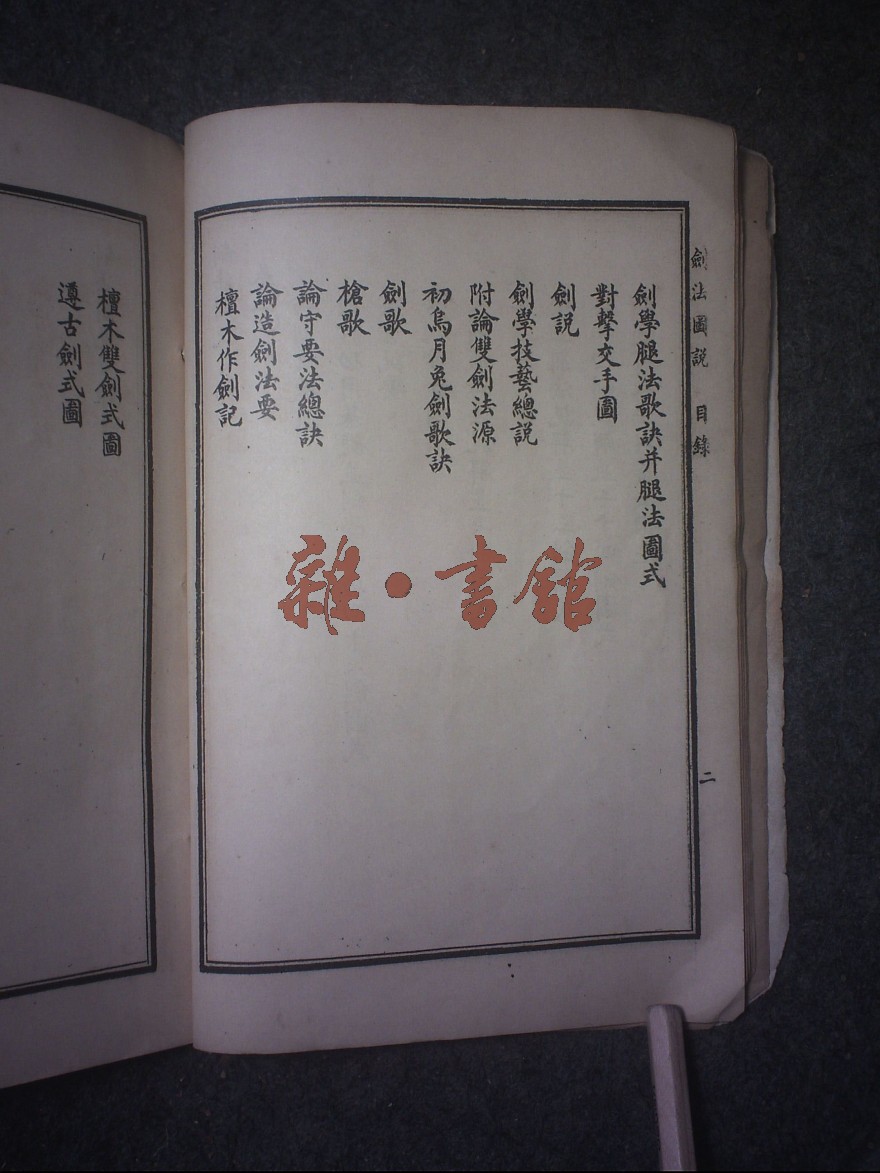 劍法圖說 目錄 二
劍學腿法歌訣并腿法圖式
對擊交手圖
劍説
劍學技藝總説
附論雙劍法源
初烏月兔劍歌訣
劍歌
槍歌
論守要法總訣
論造劍法要
檀木作劍記
檀木雙劍式圖
遵古劍式圖
雜·書館